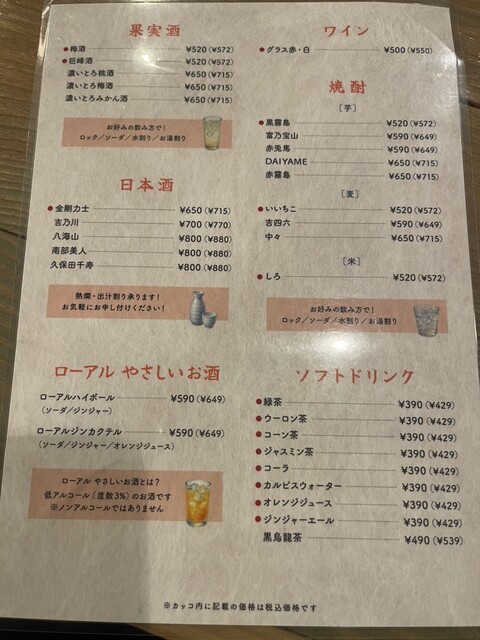 果実酒
●梅酒 ¥520(¥572)
●巨峰酒 ¥520(¥572)
濃いとろ桃酒 ¥650(¥715)
濃いとろ梅酒 ¥650(¥715)
濃いとろみかん酒 ¥650(¥715)
お好みの飲み方で！
ロック／ソーダ／水割り／お湯割り
日本酒
●金剛力士 ¥650(¥715)
吉乃川 ¥700(¥770)
八海山 ¥800(¥880)
南部美人 ¥800(¥880)
久保田千寿 ¥800(¥880)
熱燗・出汁割り承ります！
お気軽にお申し付けください！
ローアル やさしいお酒
ローアルハイボール ¥590(¥649)
(ソーダ/ジンジャー)
ローアルジンカクテル ¥590(¥649)
(ソーダ/ジンジャー/オレンジジュース)
ローアル やさしいお酒とは？
低アルコール(度数3%)のお酒です
※ノンアルコールではありません
ワイン
●グラス赤・白 ¥500(¥550)
焼酎
[芋]
●黒霧島 ¥520(¥572)
富乃宝山 ¥590(¥649)
赤兎馬 ¥590(¥649)
DAIYAME ¥650(¥715)
赤霧島 ¥650(¥715)
[麦]
●いいちこ ¥520(¥572)
吉四六 ¥590(¥649)
中々 ¥650(¥715)
[米]
●しろ ¥520(¥572)
お好みの飲み方で！
ロック／ソーダ／水割り／お湯割り
ソフトドリンク
●緑茶 ¥390(¥429)
●ウーロン茶 ¥390(¥429)
●コーン茶 ¥390(¥429)
●ジャスミン茶 ¥390(¥429)
●コーラ ¥390(¥429)
●カルピスウォーター ¥390(¥429)
●オレンジジュース ¥390(¥429)
●ジンジャーエール ¥390(¥429)
黒烏龍茶 ¥490(¥539)
※カッコ内に記載の価格は税込価格です